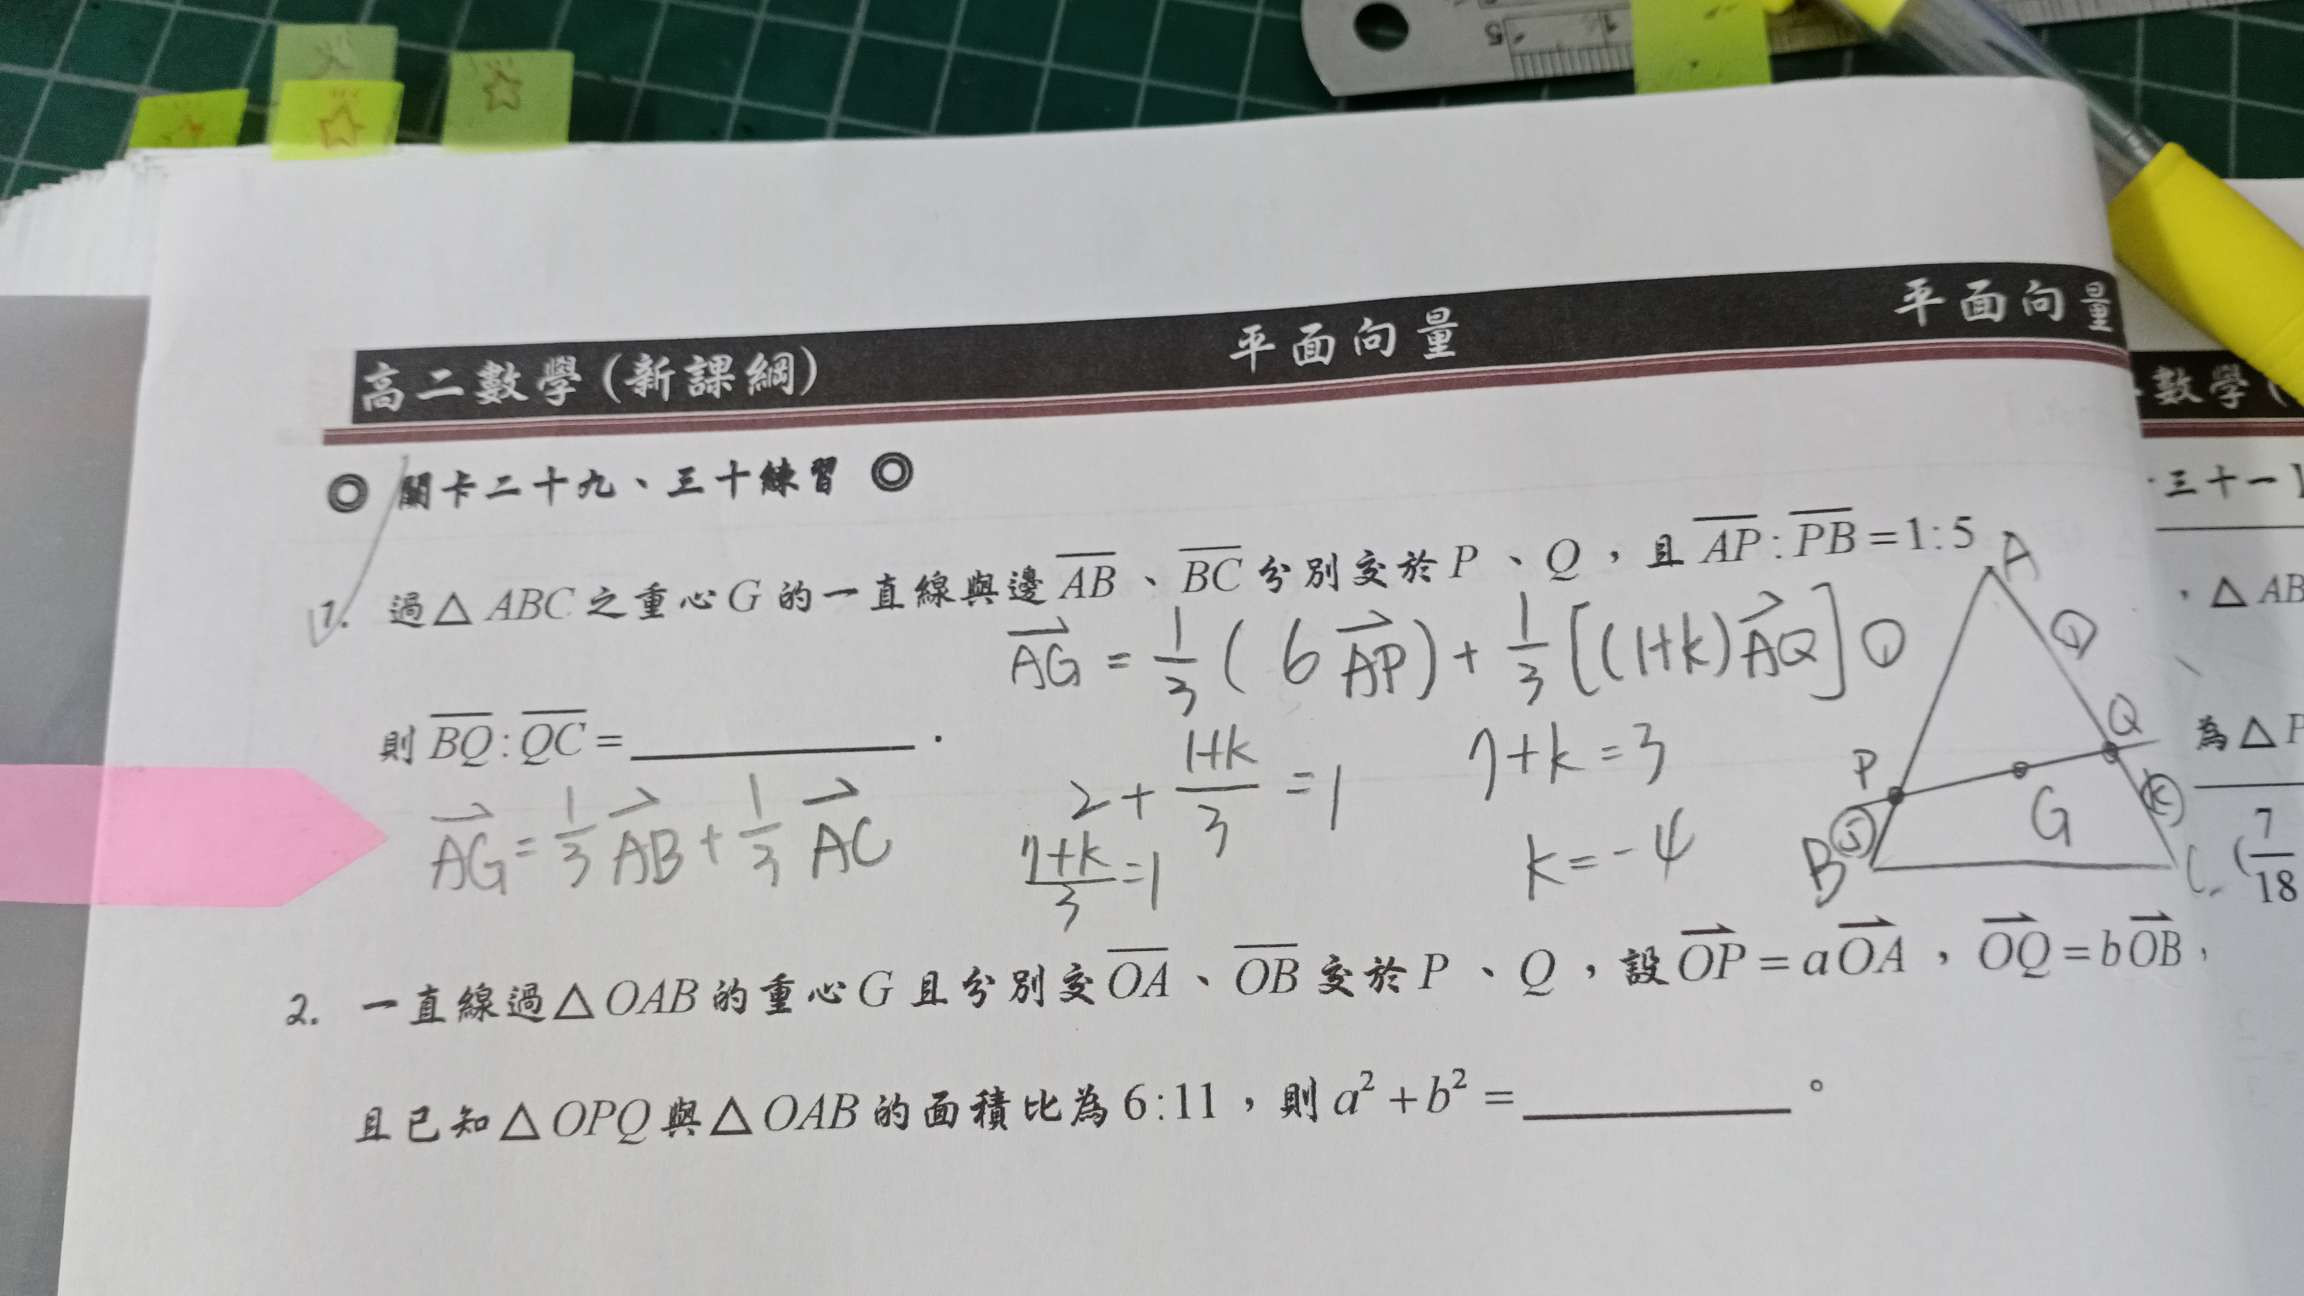 高二數學(新課綱) 平面向量 平面向量
◎ 關卡二十九、三十練習 ◎
1. 過△ABC之重心G的一直線與邊AB、BC分別交於P、Q，且AP:PB=1:5
AG = 1/3 ( 6AP) + 1/3 [(1+k)AQ]
則BQ:QC=____________.
AG = 1/3 AB + 1/3 AC
2 + (1+k)/3 = 1
7+k = 3
(7+k)/3 = 1
k = -4
A
①
Q
P
G
k
5
B
C
2. 一直線過△OAB的重心G且分別交OA、OB交於P、Q，設OP=aOA，OQ=bOB，
且已知△OPQ與△OAB的面積比為6:11，則a²+b²=____________。
數學(
三十一】
，△AB
為△P
(7/18
5